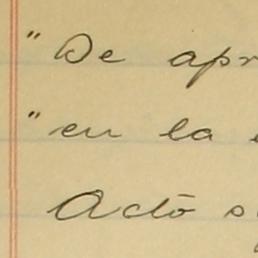 " De apr
" en la
Actó s